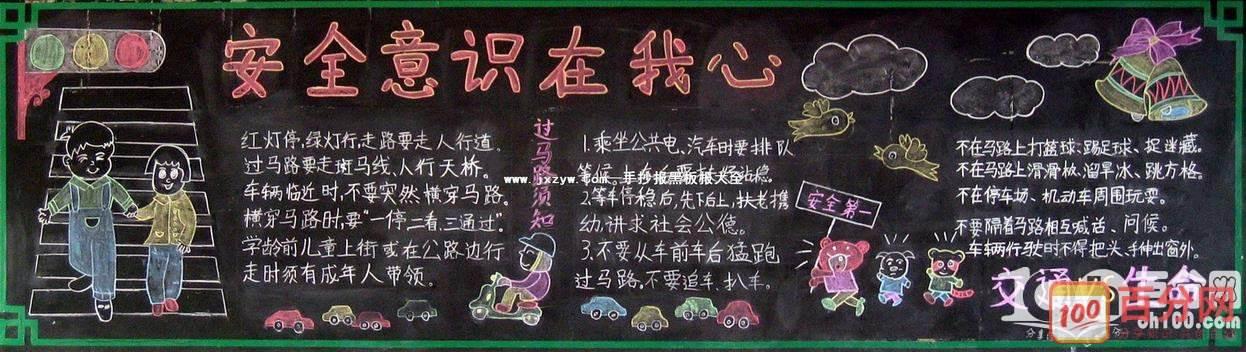 安全意识在我心
红灯停,绿灯行,走路要走人行道。
过马路要走斑马线、人行天桥。
车辆临近时,不要突然横穿马路。
横穿马路时,要“一停二看三通过”。
学龄前儿童上街或在公路边行
走时须有成年人带领。
过马路须知
1.乘坐公共电、汽车时要排队
等候
手抄报黑板报大全
2.等车停稳后,先下后上,扶老携
幼,讲求社会公德。
3.不要从车前车后猛跑
过马路,不要追车、扒车。
安全第一
不在马路上打篮球、踢足球、捉迷藏。
不在马路上滑滑板、溜旱冰、跳方格。
不在停车场、机动车周围玩耍。
不要隔着马路相互喊话、问候。
车辆行驶时不得把头、手伸出窗外。
交通
生命
100
百分网
oh100.com